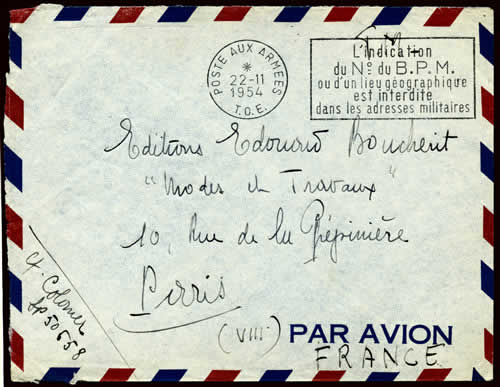 POSTE AUX ARMEES
*
22-11
1954
T.O.E.
L'indication
du No du B.P.M.
ou d'un lieu géographique
est interdite
dans les adresses militaires
Editions Edouard Boucherit
"Modes et Travaux"
10, Rue de la Pépinière
Paris
(VIII)
PAR AVION
FRANCE
Colomer
SP 50558